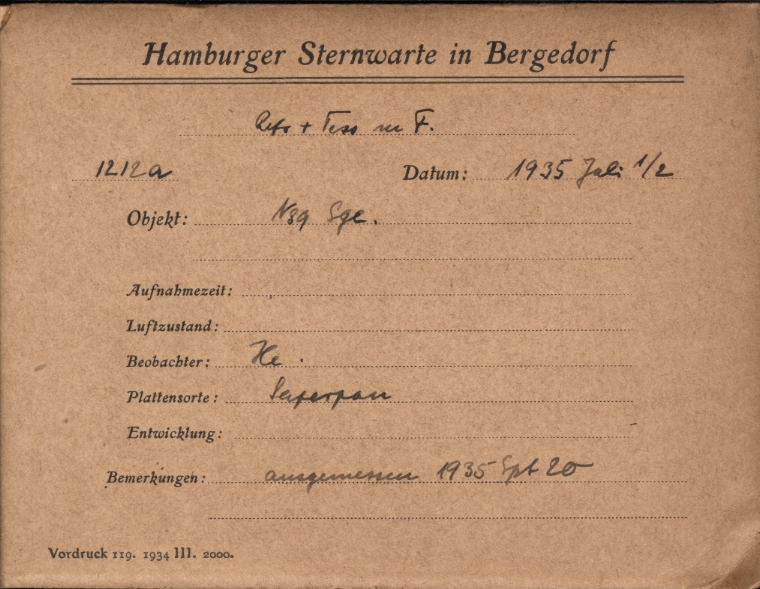 Hamburger Sternwarte in Bergedorf
+ Tess m F.
1212a Datum: 1935 Juli 1/2
Objekt: Sge.
Aufnahmezeit:
Luftzustand:
Beobachter: He.
Plattensorte: Superpan
Entwicklung:
Bemerkungen: ausgemessen 1935 Spt 20
Vordruck 119. 1934 III. 2000.